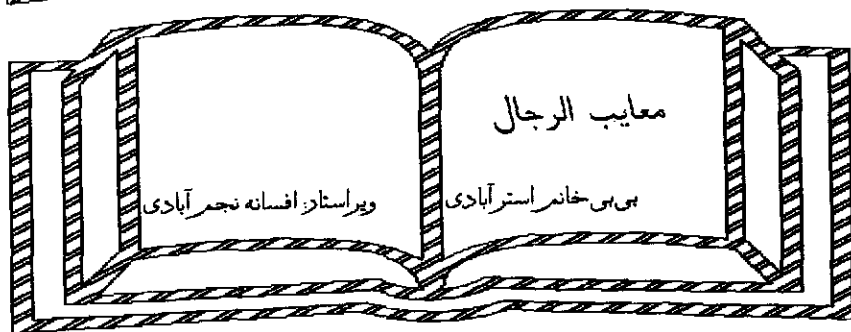 معایب الرجال
بی بی خانم استرآبادی
ویراستار: افسانه نجم آبادی